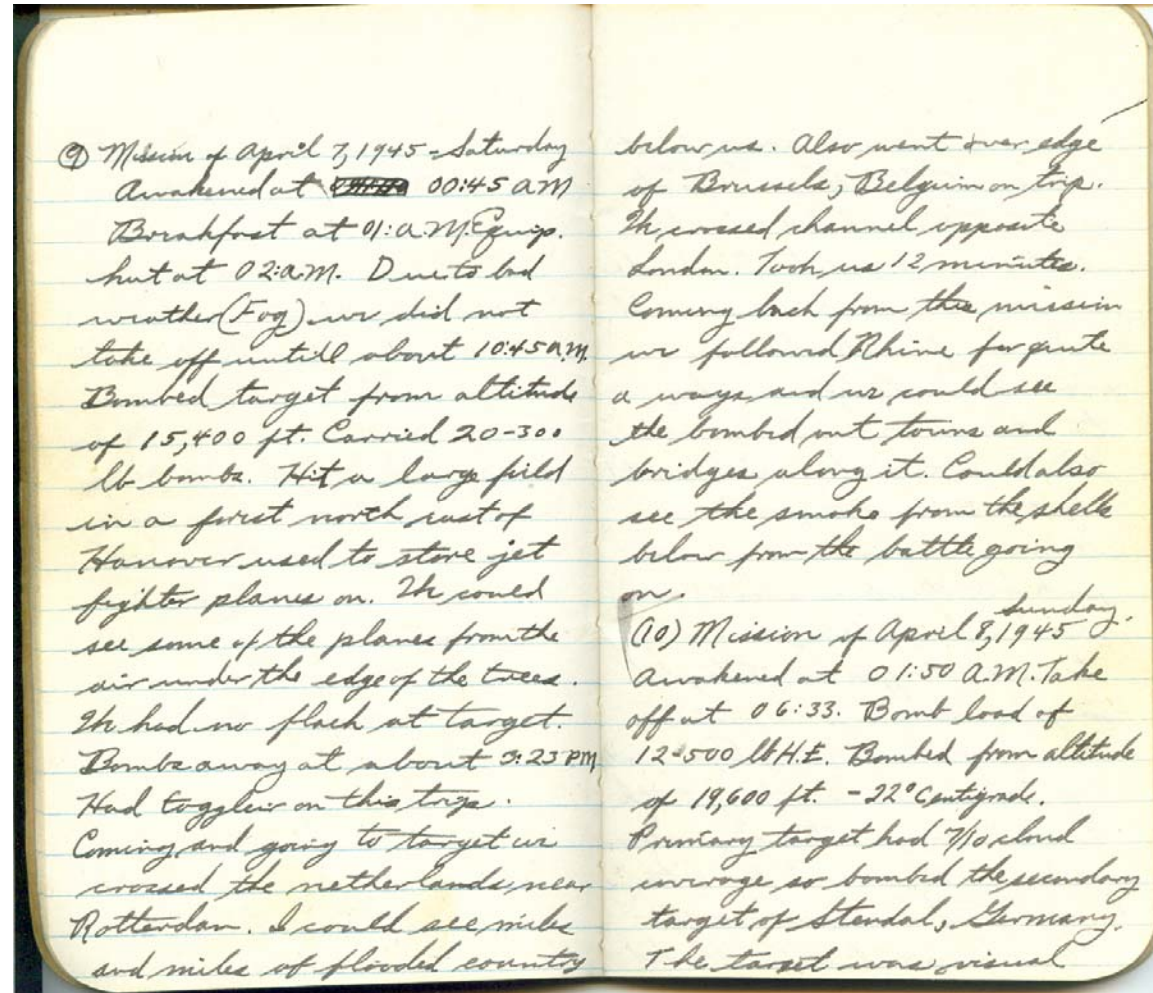 ⑨ Mission of April 7, 1945 - Saturday
Awakened at 00:45 AM
Breakfast at 01: a.M. Equip.
hut at 02:a.M. Due to bad
weather (Fog) we did not
take off untill about 10:45 a.M.
Bombed target from altitude
of 15,400 ft. Carried 20-300
lb bombs. Hit a large field
in a forest north east of
Hanover used to store jet
fighter planes on. We could
see some of the planes from the
air under the edge of the trees.
We had no flack at target.
Bombs away at about 3:23 PM
Had togglier on this trip.
Coming and going to target we
crossed the netherlands, near
Rotterdam. I could see miles
and miles of flooded country
below us. Also went over edge
of Brussels, Belgium on trip.
We crossed channel opposite
London. Took us 12 minutes.
Coming back from this mission
we followed Rhine for quite
a ways and we could see
the bombed out towns and
bridges along it. Could also
see the smoke from the shells
below from the battle going
on.
Sunday.
(10) Mission of April 8, 1945
Awakened at 01:50 A.M. Take
off at 06:33. Bomb load of
12-500 lb H.E. Bombed from altitude
of 19,600 ft. -22° Centigrade.
Primary target had 7/10 cloud
coverage so bombed the secondary
target of Stendal, Germany.
The target was visual